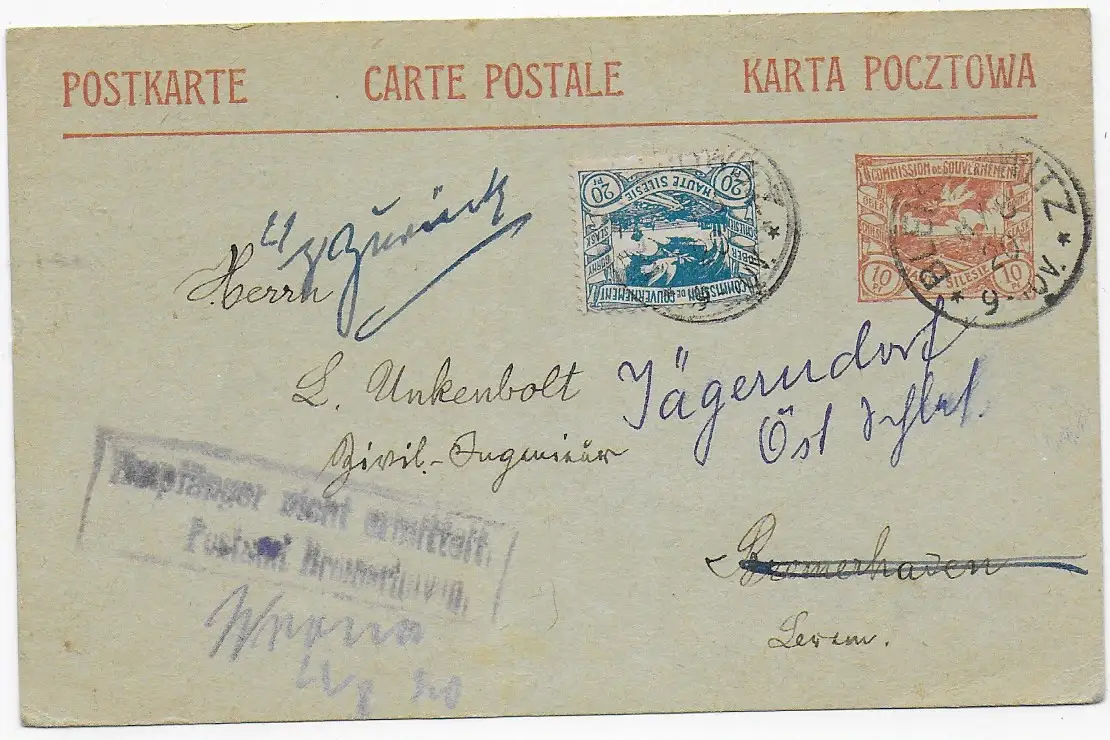 POSTKARTE CARTE POSTALE KARTA POCZTOWA
COMMISSION DE GOUVERNEMENT
HAUTE SILESIE
OBER
SCHLESIEN
GORNY
SLASK
20 Pf 20 Pf
COMMISSION DE GOUVERNEMENT
OBER
SLASK
SILESIE
10 Pf 10 Pf
zurück
Herrn
L. Unkenbolt
Zivil-Ingenieur
Jägerndorf
Öst Schles.
Bremerhaven
Empfänger nicht ermittelt.
Postamt Bremerhaven.